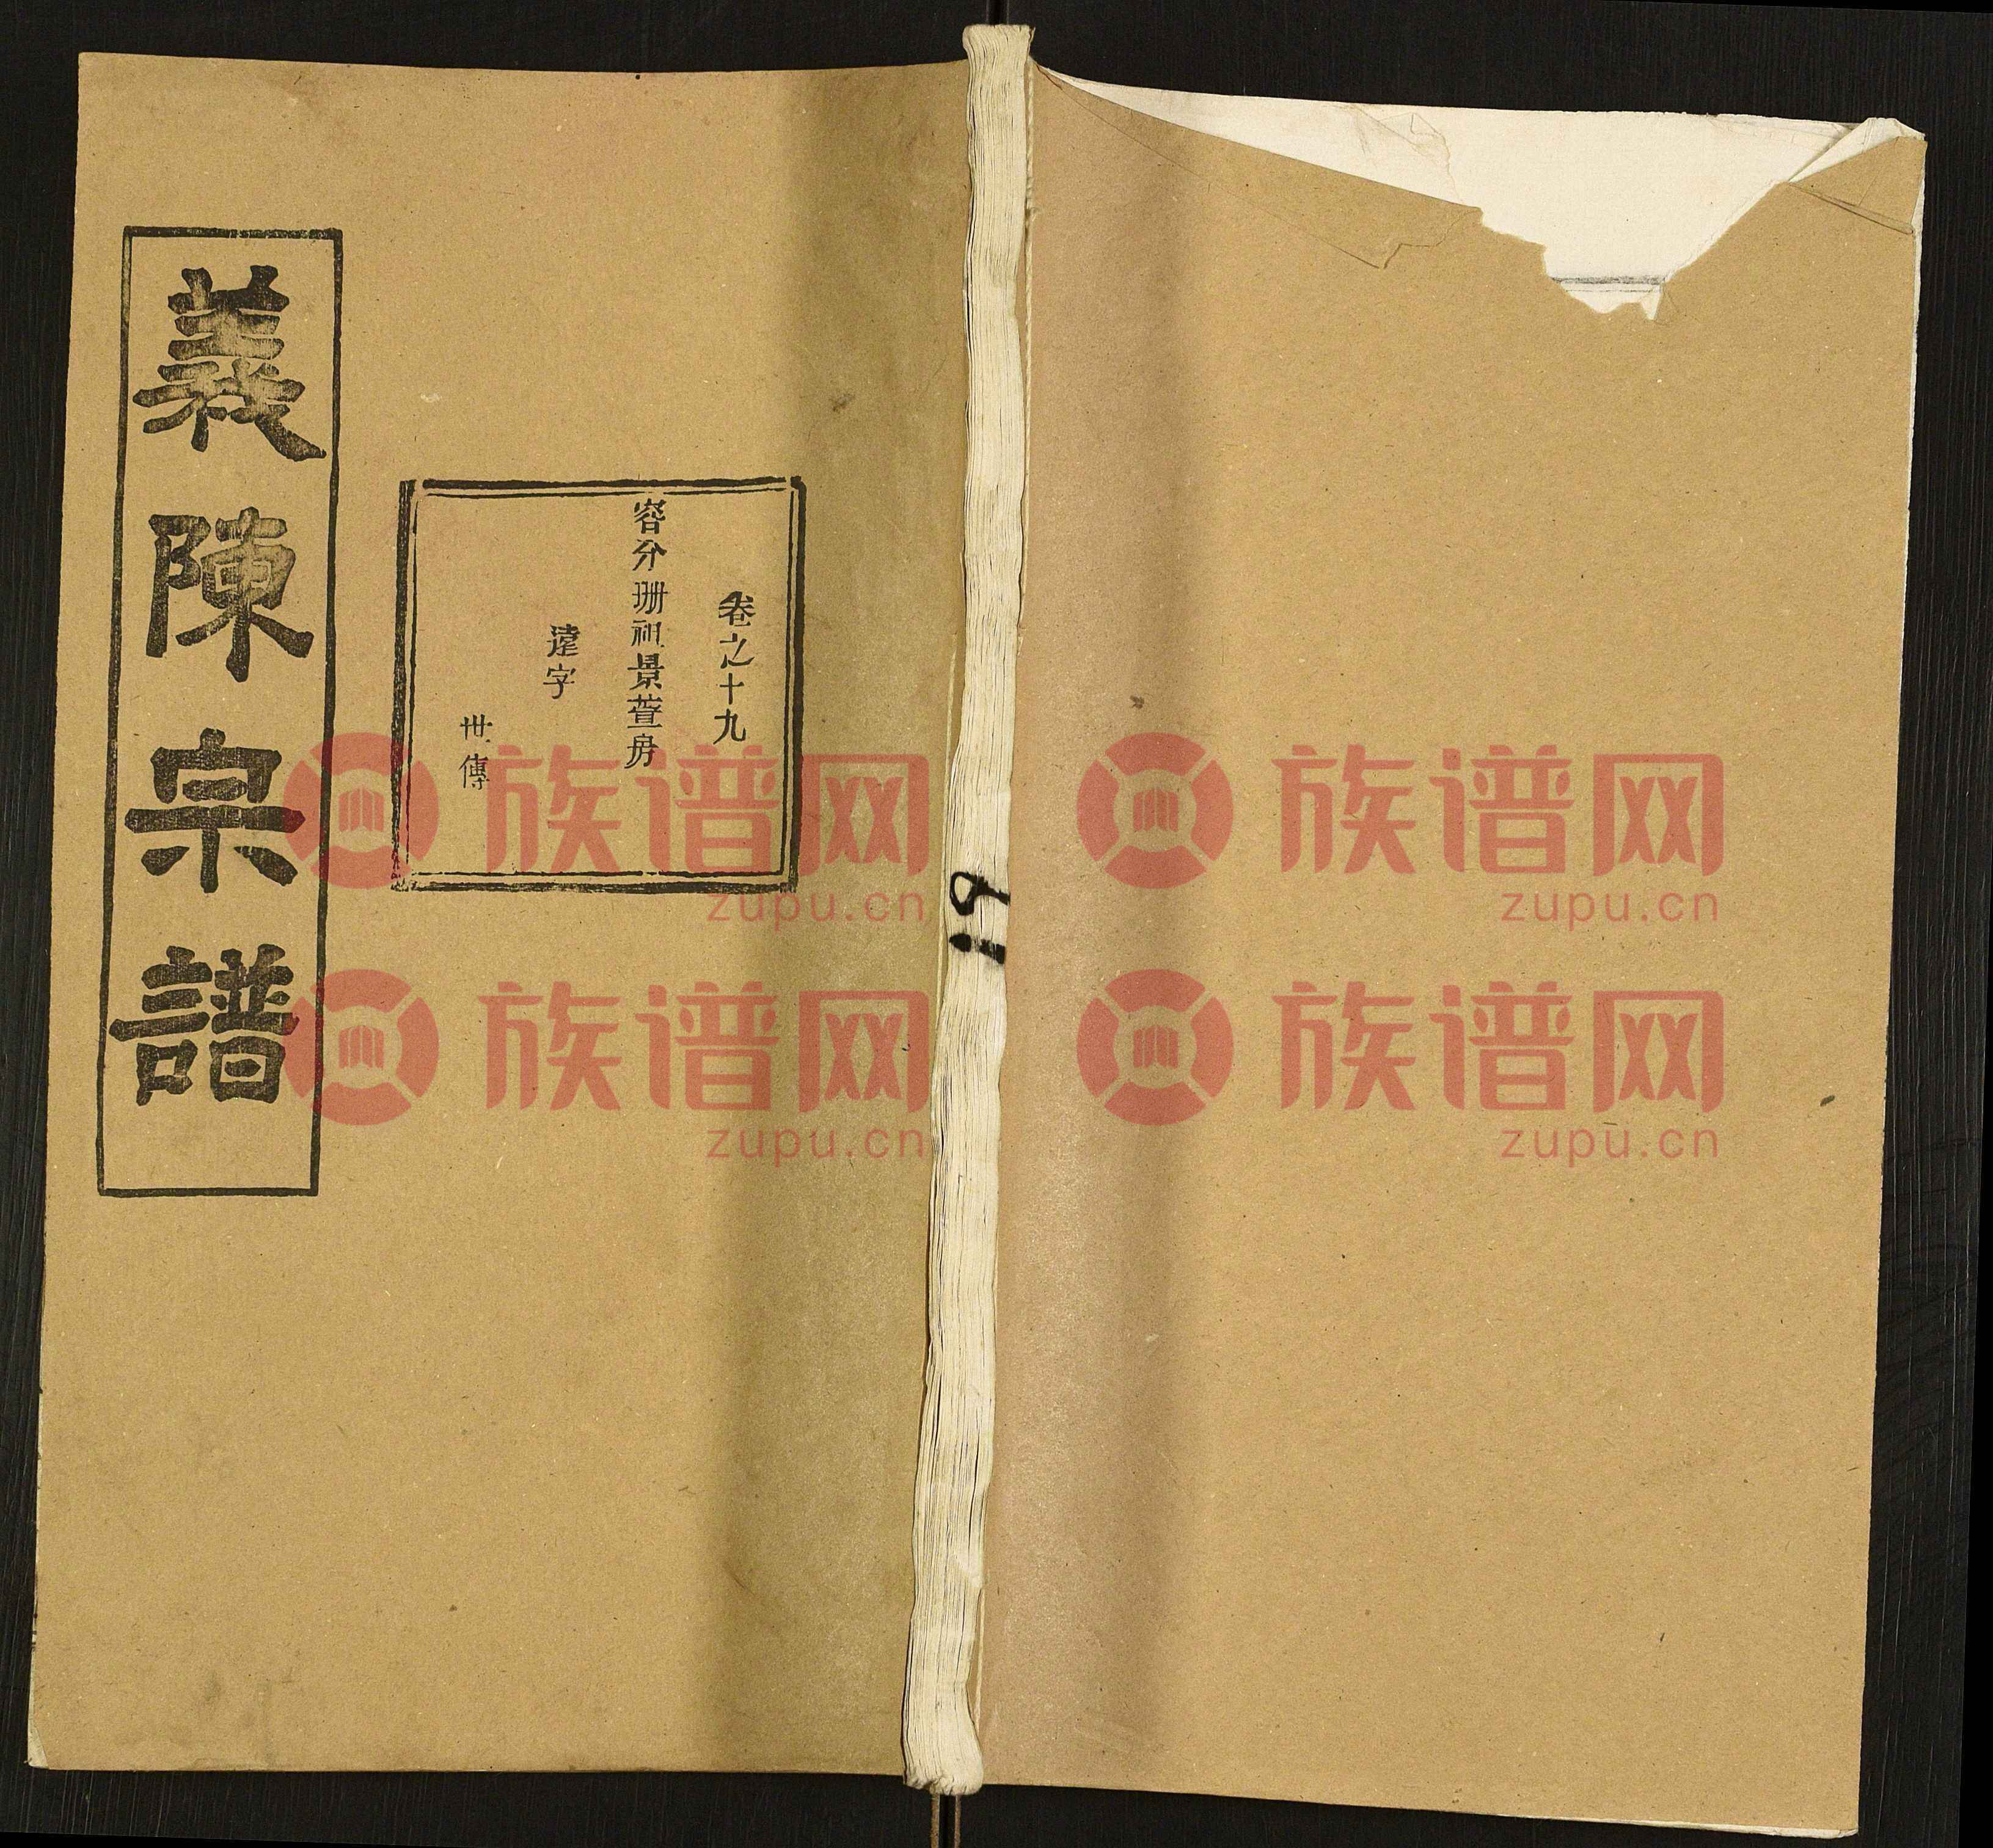 義陳宗譜
卷之十九
容分珊祖景萱房
遠字
世傳
19
族谱网
zupu.cn
族谱网
zupu.cn
族谱网
zupu.cn
族谱网
zupu.cn